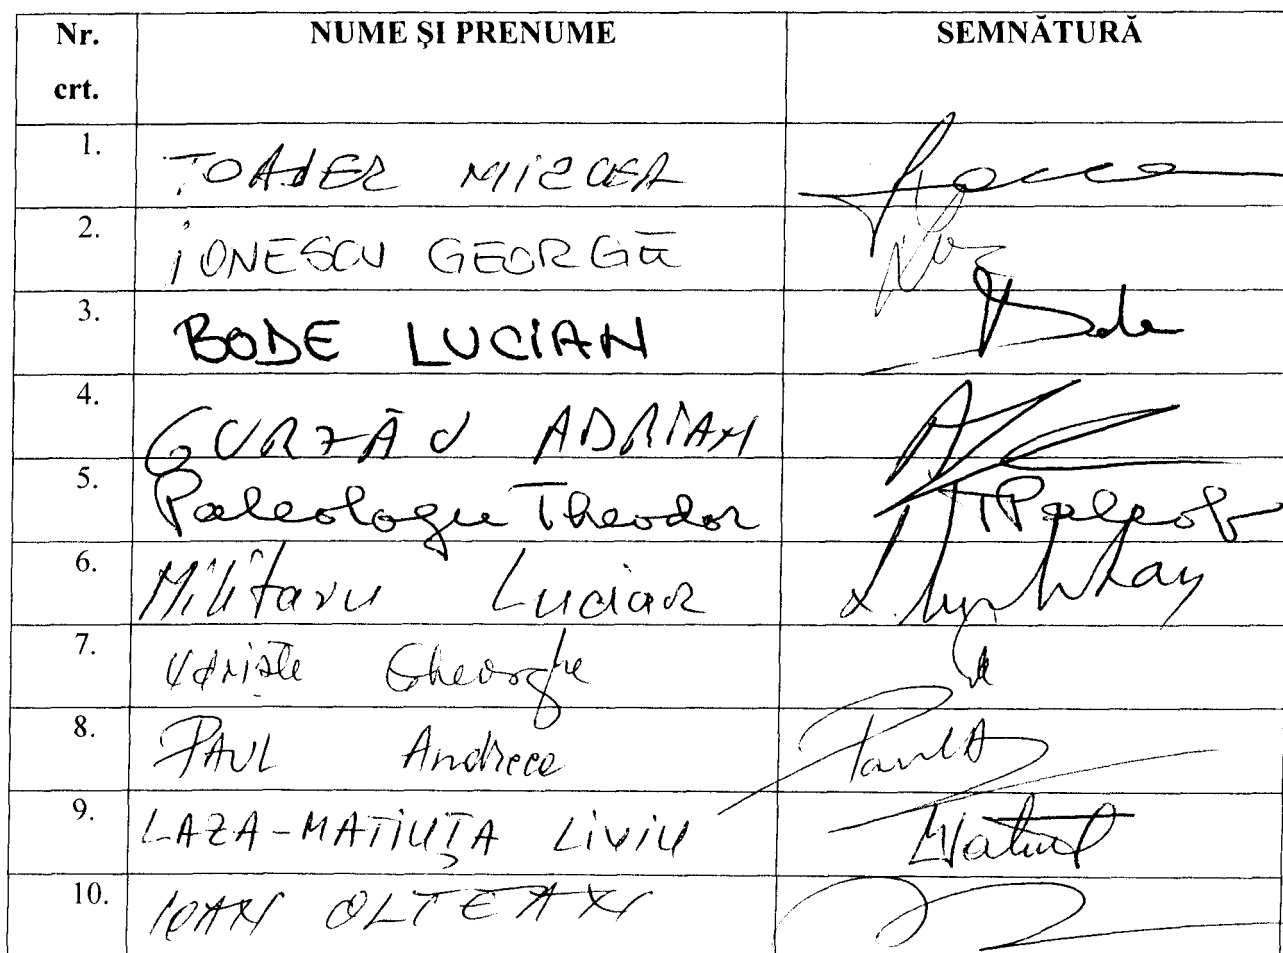 Nr. crt. NUME ȘI PRENUME SEMNĂTURĂ
1. TOADER MIRCEA
2. IONESCU GEORGE
3. BODE LUCIAN Bode
4. GURZĂU ADRIAN
5. Paleologu Theodor TPaleolo
6. Militaru Lucian
7. Gheorghe
8. PAUL Andreea PaulA
9. LAZA-MATIUȚA LIVIU
10. IOAN OLTEAN